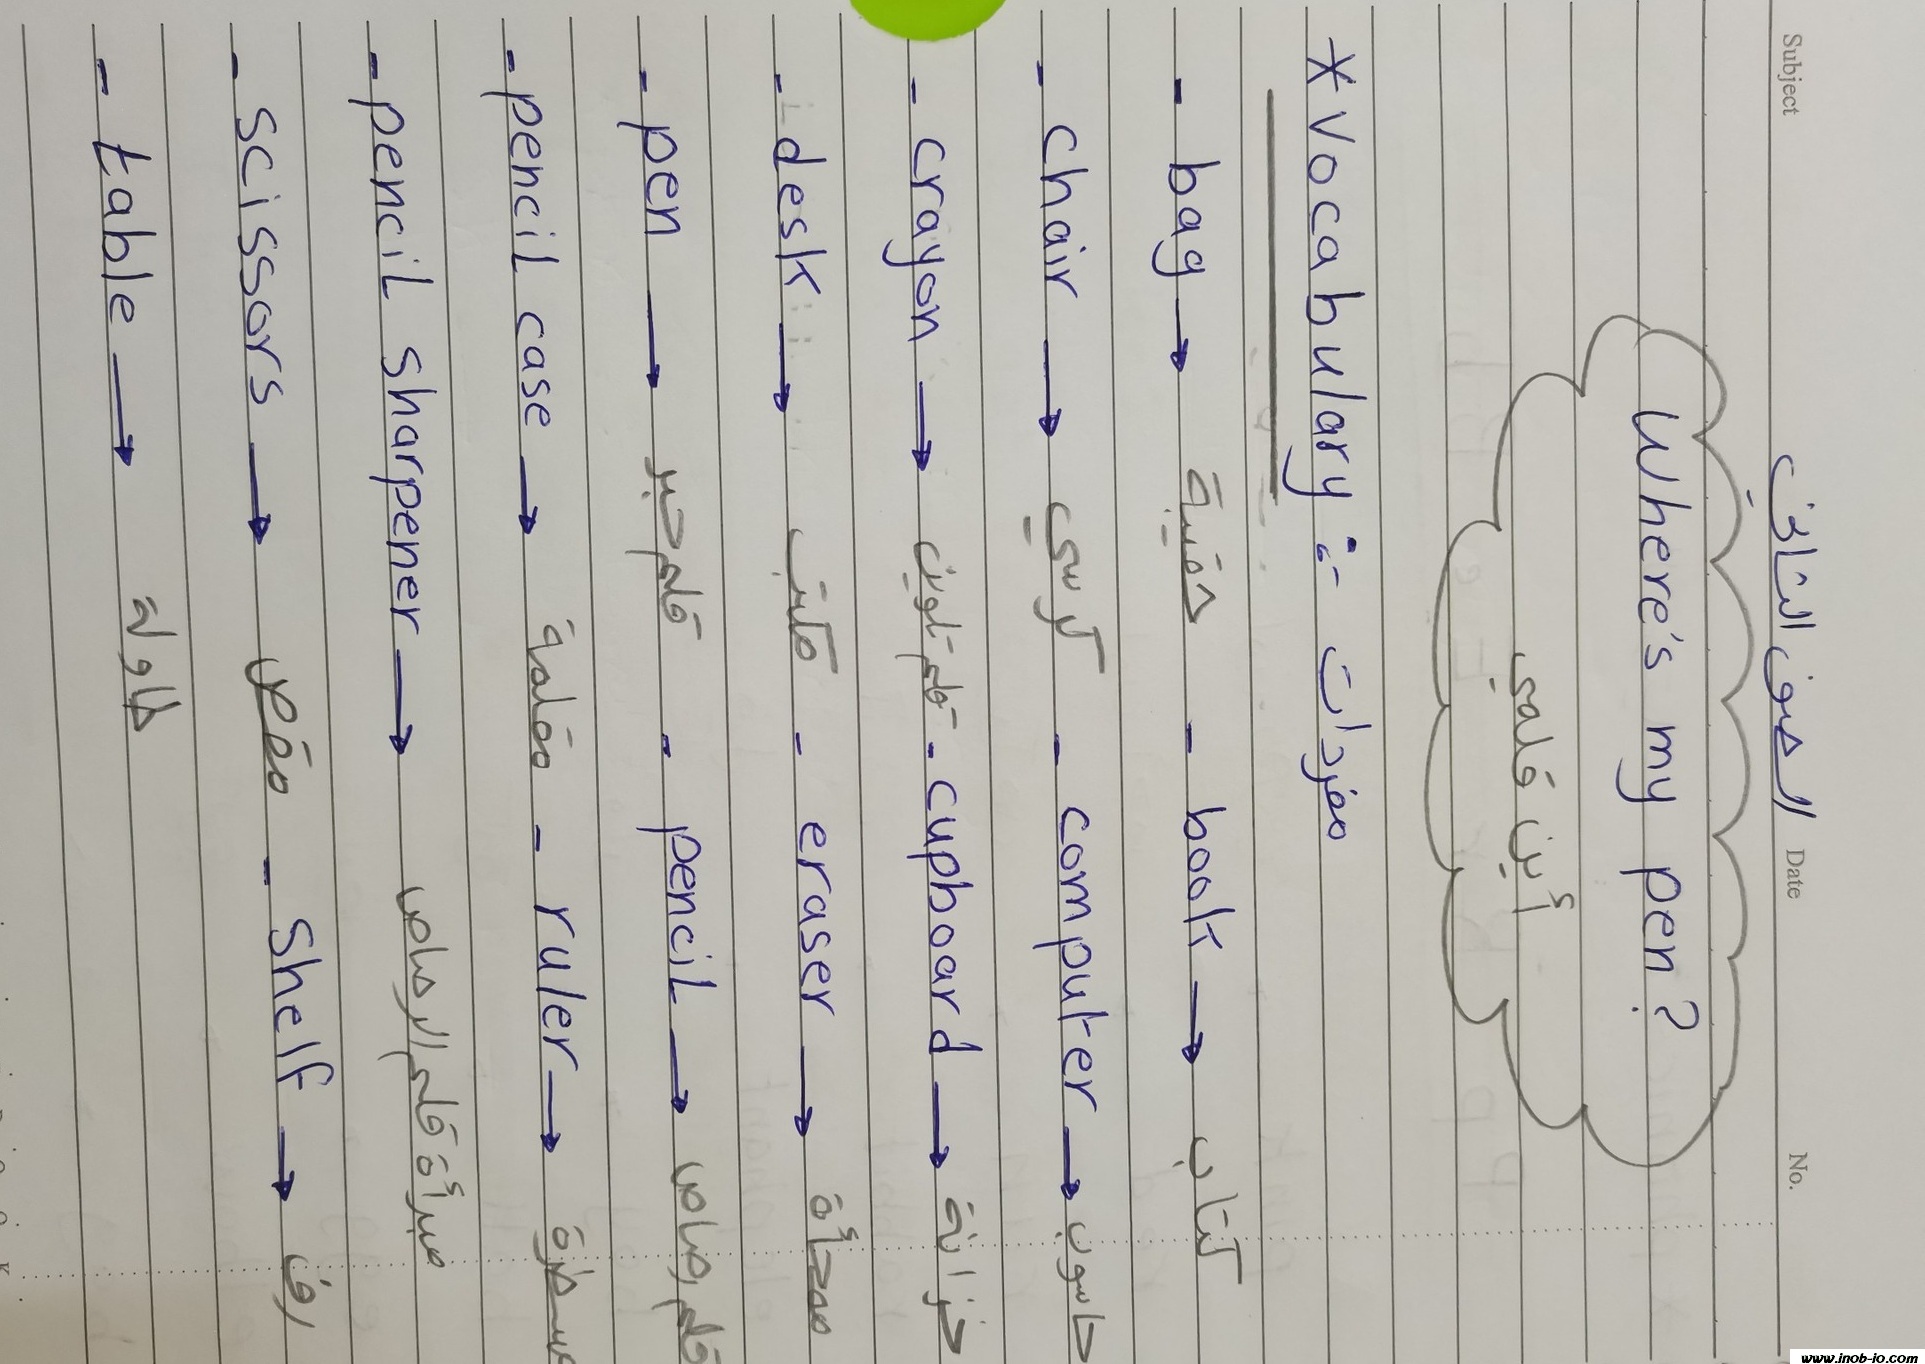 الصف الثاني
Subject Date No.
Where's my pen?
أين قلمي
* Vocabulary :- مفردات
- bag → حقيبة - book → كتاب
- chair → كرسي - computer → حاسوب
- crayon → قلم تلوين - cupboard → خزانة
- desk → مكتب - eraser → ممحاة
- pen → قلم حبر - pencil → قلم رصاص
- pencil case → مقلمة - ruler → مسطرة
- pencil sharpener → مبرأة قلم الرصاص
- scissors → مقص - shelf → رف
- table → طاولة
www.inob-io.com